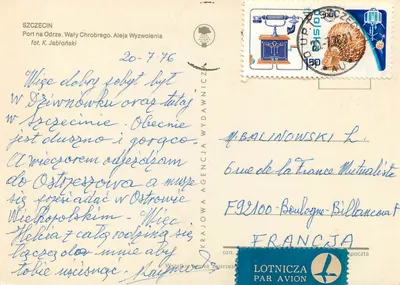 SZCZECIN
Port na Odrze. Wały Chrobrego. Aleja Wyzwolenia
fot. K. Jabłoński
20-7-76
Więc dobry pobyt był
w Dziwnówku oraz tutaj
w Szczecinie. Obecnie
jest duszno i gorąco.
A wieczorem odjeżdżam
do Ostrzeszowa a muszę
się przesiadać w Ostrowie
Wielkopolskim. Więc
z całą rodziną się
łączę do mnie aby
KRAJOWA AGENCJA WYDAWNICZA
POLSKA
1,50
M BALINOWSKI L.
6 rue de la France Mutualiste
F92100-Boulogne-Billancourt
FRANCJA
LOTNICZA
PAR AVION